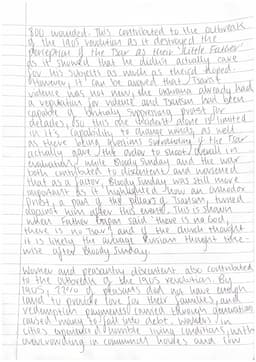 800 wounded. This contributed to the outbreak
of the 1905 revolution as it destroyed the
perception of the Tsar as their 'Little Father'
as it showed that he didn't actually care
for his subjects as much as they'd hoped.
However, it can be argued that Tsarist
violence was not new, the Okhrana already had
a reputation for violence and Tsarism had been
capable of brutally supressing protest for
decades, so this one 'incident' alone is limited
in it's capability to change minds, as well
as there being
actually gave the order to shoot. Overall in
evaluation, while Bloody Sunday and the war
both contributed to discontent and unrest
that as a factor, Bloody Sunday was still more
important as it highlighted how an orthodox
priest, a part of the pillars of Tsarism, turned
against him after this event. This is shown
when Father Gapon said 'there is no God,
there is no Tsar' and if the church thought
it is likely the average Russian thought like-
wise after Bloody Sunday.
Women and peasantry discontent also contributed
to the outbreak of the 1905 revolution. By
1905, of peasants did not have enough
land to provide for their families, and
redemption payments caused through emancipation
caused many to fall into debt. Workers in
cities endured horrible living conditions, with
overcrowding in communal houses and low